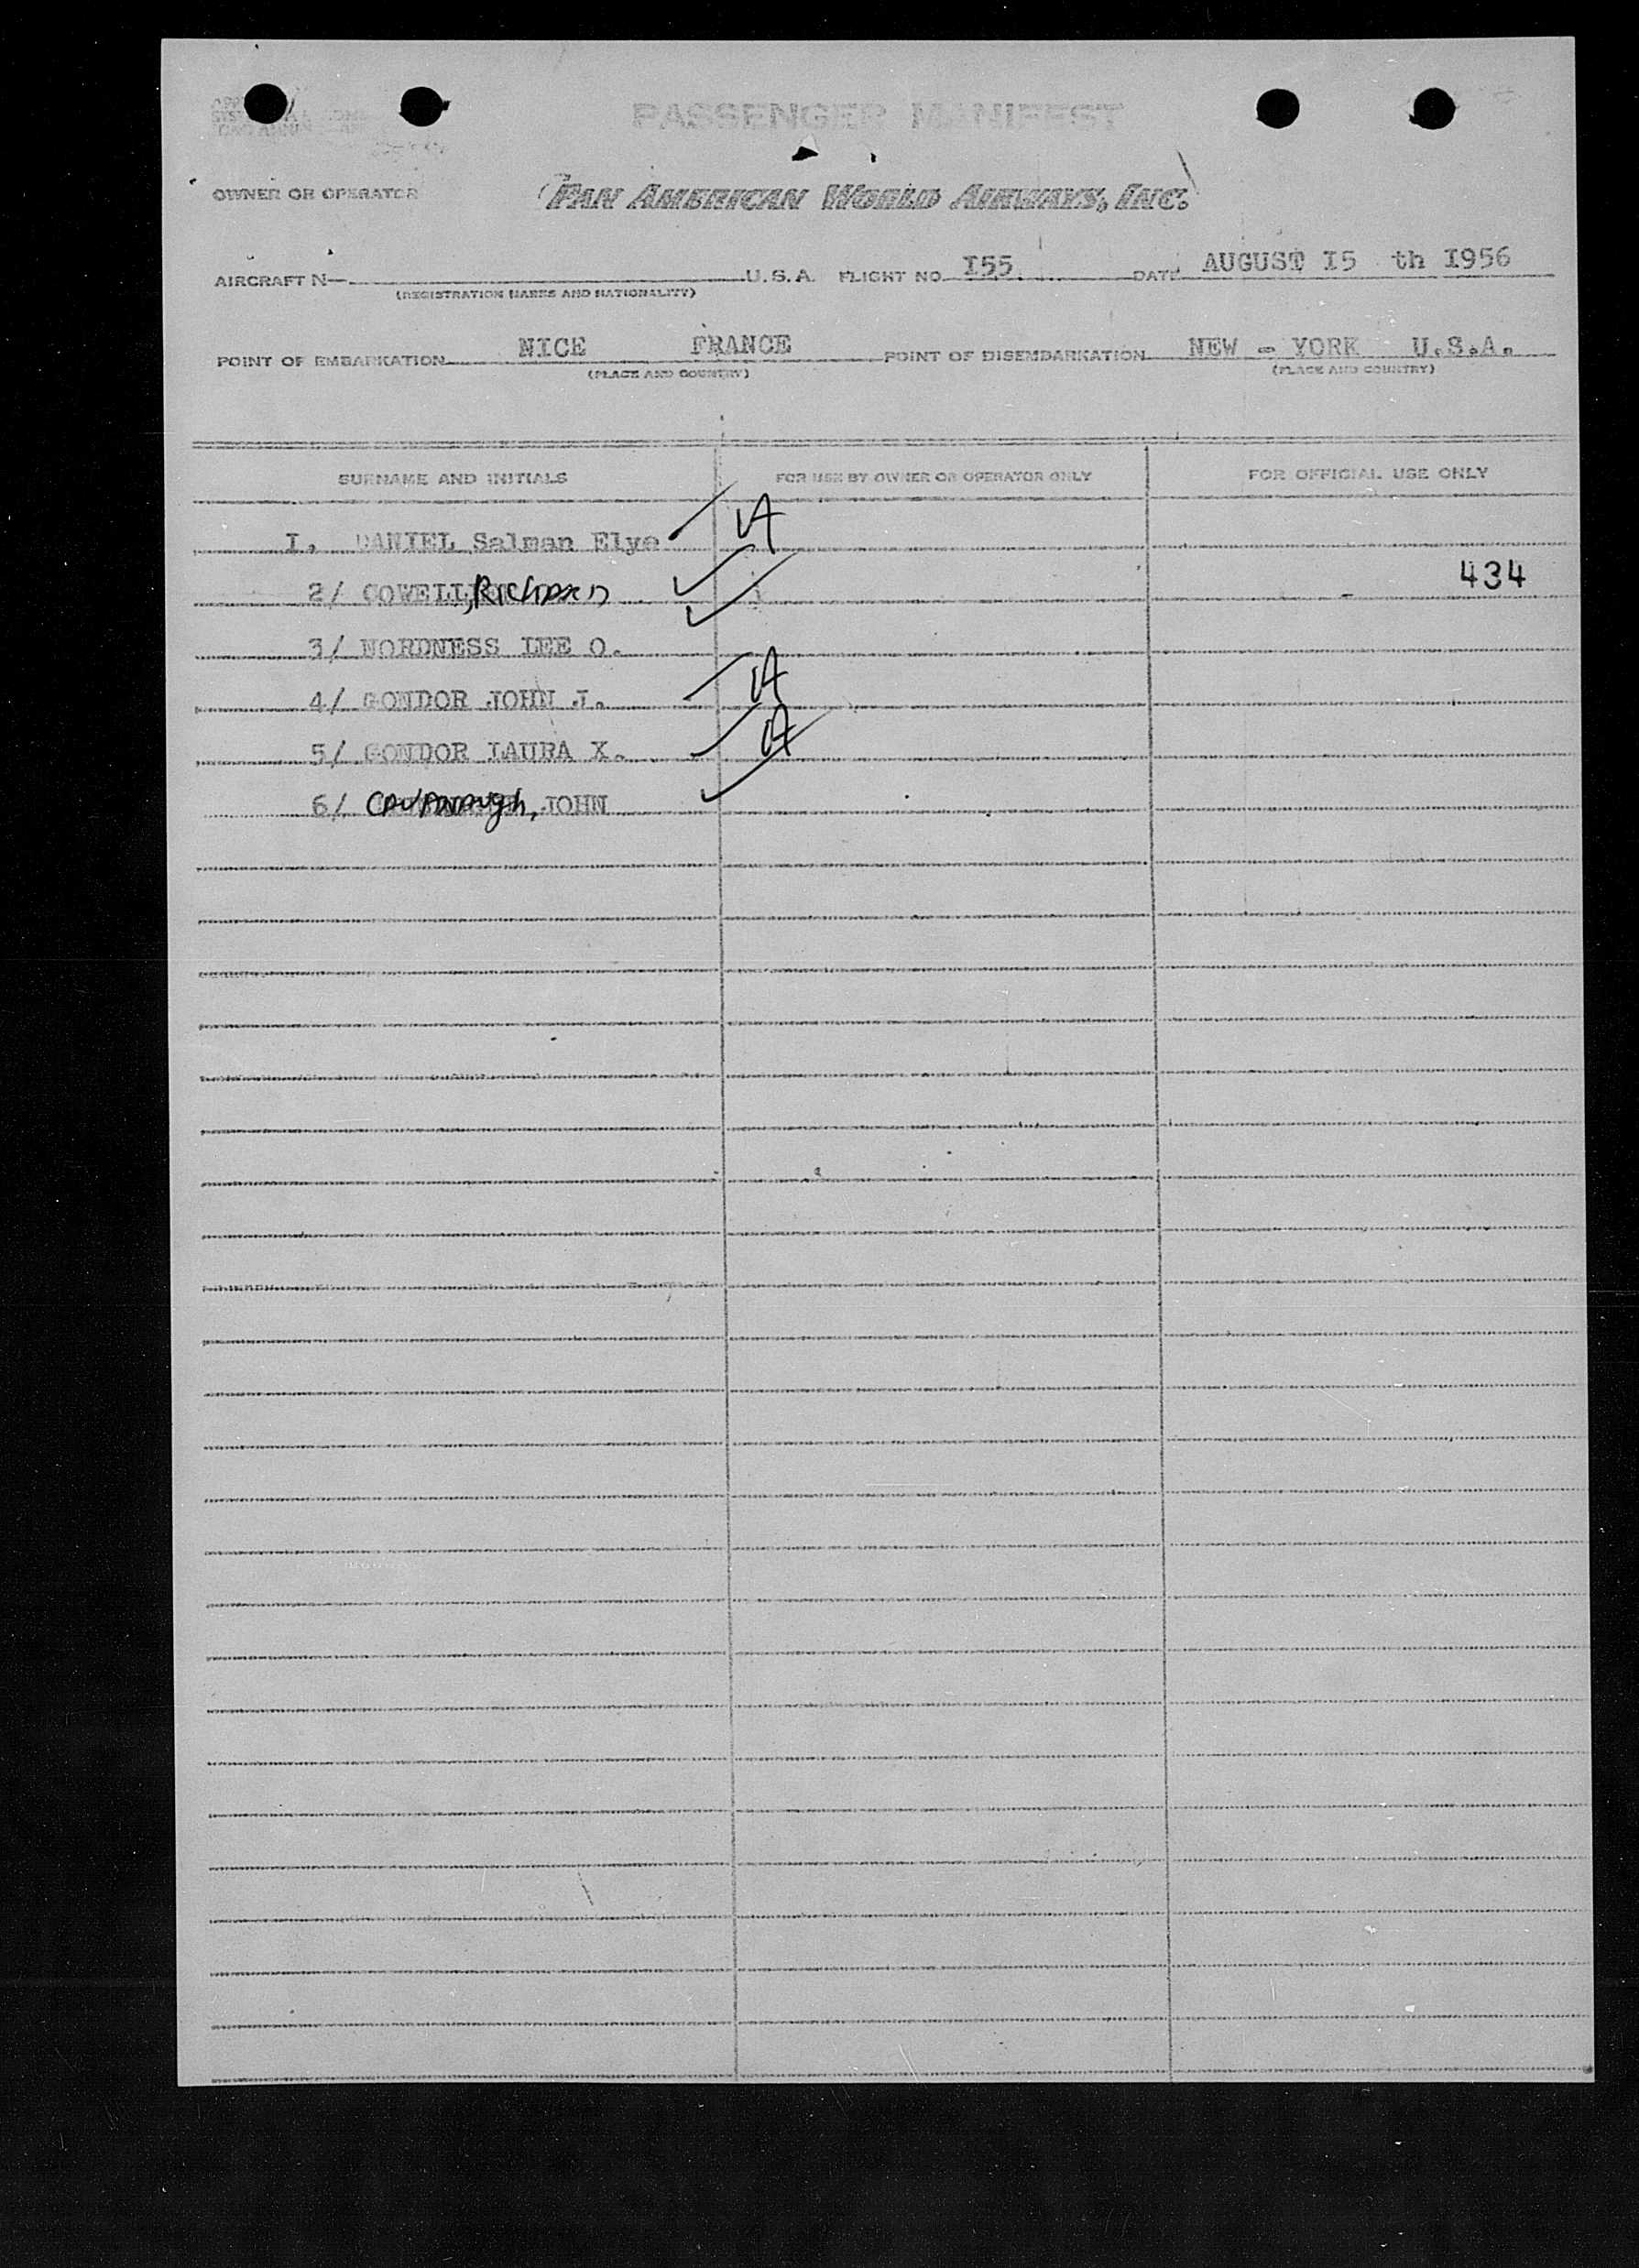 PASSENGER MANIFEST
OWNER OR OPERATOR PAN AMERICAN WORLD AIRWAYS, INC.
AIRCRAFT N— U.S.A. FLIGHT NO. I55 DATE AUGUST I5 th I956
(REGISTRATION MARKS AND NATIONALITY)
POINT OF EMBARKATION NICE FRANCE POINT OF DISEMBARKATION NEW - YORK U.S.A.
(PLACE AND COUNTRY) (PLACE AND COUNTRY)
SURNAME AND INITIALS FOR USE BY OWNER OR OPERATOR ONLY FOR OFFICIAL USE ONLY
I. DANIEL Salman Elye
2/ COWELL, Richard 434
3/ NORDNESS LEE O.
4/ GONDOR JOHN J.
5/ GONDOR LAURA X.
6/ Cavanaugh, JOHN